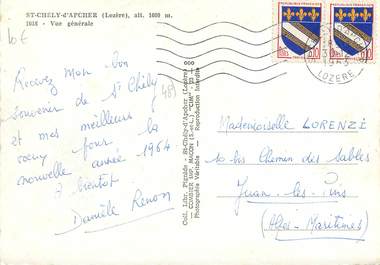 ST-CHÉLY-d'APCHER (Lozère), alt. 1000 m.
1018 - Vue générale
10€
Recevez mon bon
souvenir de St Chély
et mes meilleurs
voeux pour la
nouvelle année 1964
A bientôt
Danièle Renon
(48)
000
Coll. Libr. Pignide - St-Chély-d'Apcher (Lozère)
COMBIER IMP. MACON (S.-et-L.) "CIM"
Photographie Véritable - Reproduction Interdite
0,10
0,10
1963
LOZERE
Mademoiselle LORENZI
10 bis Chemin des Sables
Juan-les-Pins
(Alpes-Maritimes)